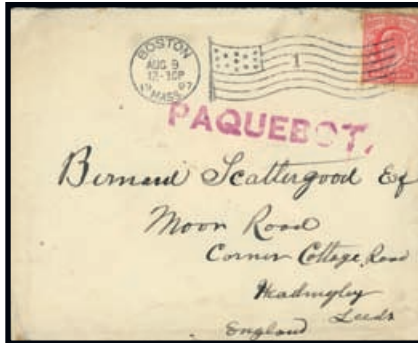 BOSTON
AUG 9
12-1 30P
MASS.
1
PAQUEBOT.
Bernard Scattergood Esq
Moor Road
Corner Cottage, Road
Headingley
Leeds
England